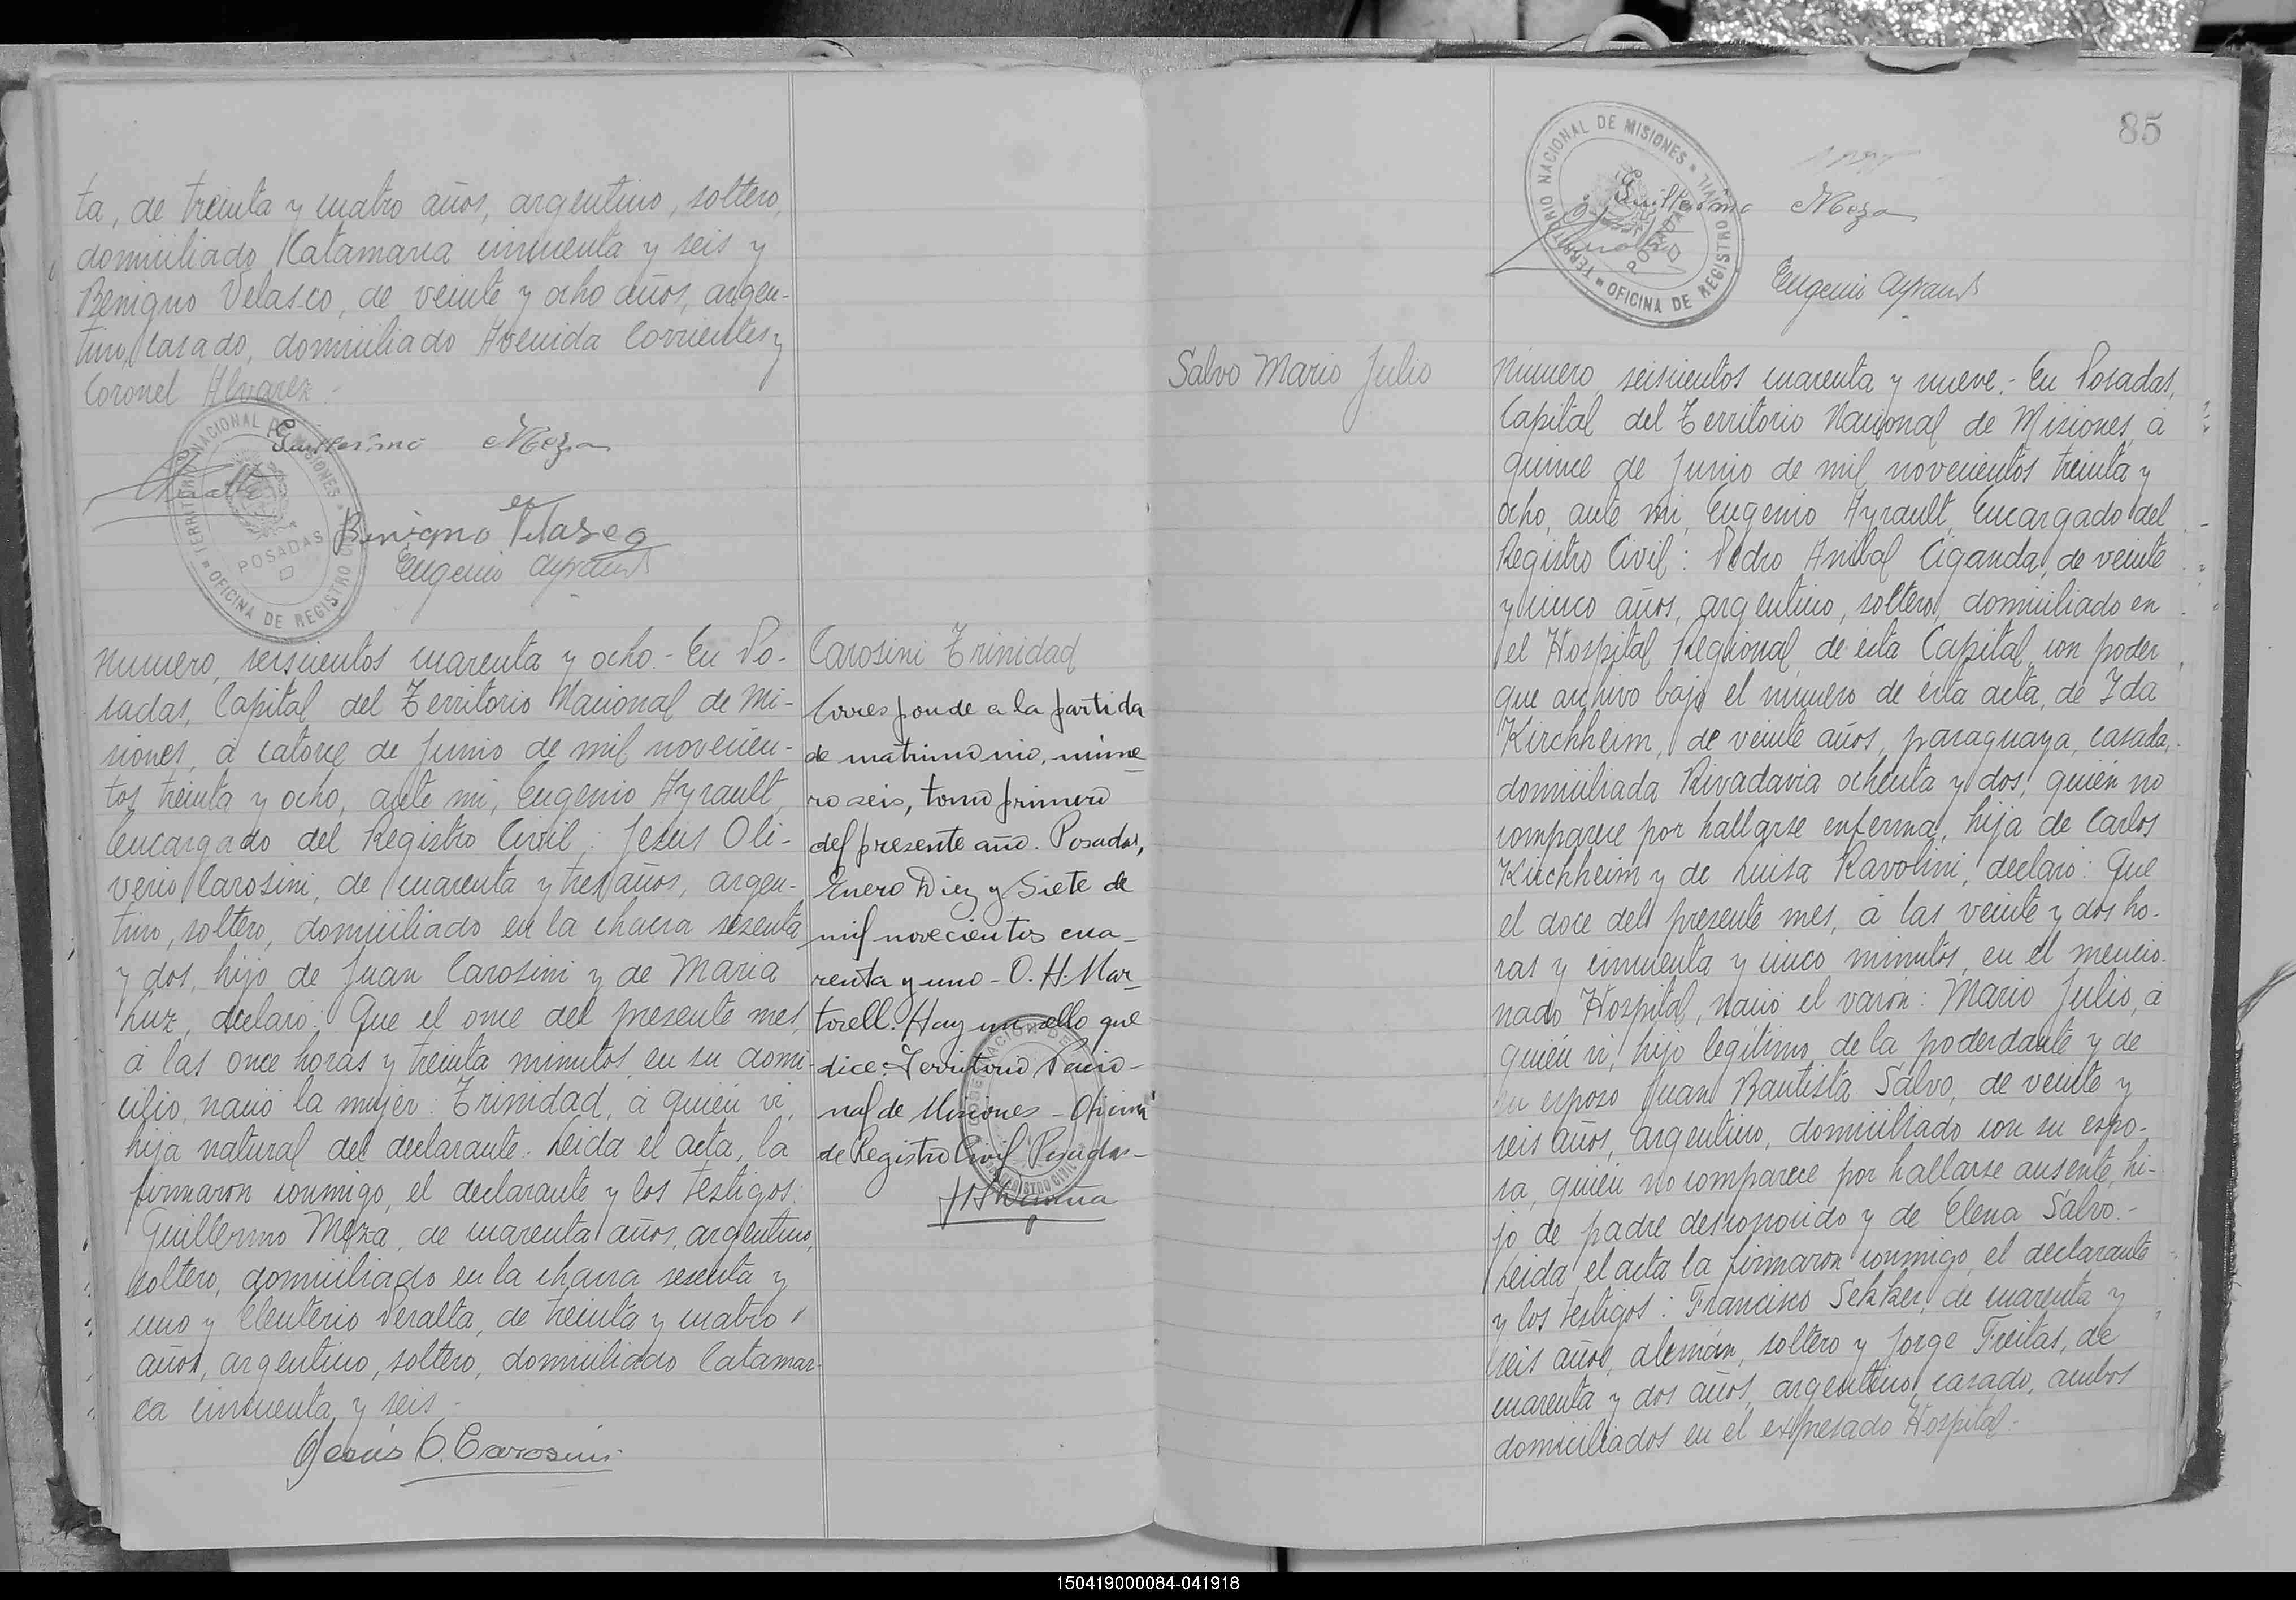 ta, de treinta y cuatro años, argentino, soltero,
domiciliado Katamarca cincuenta y seis y
Benigno Velasco, de veinte y ocho años, argen-
tino, casado, domiciliado Avenida Corrientes y
Coronel Alvarez.-
Guillermo Meza
Benigno Velasco
Eugenio Ayrault
TERRITORIO NACIONAL DE MISIONES
POSADAS
OFICINA DE REGISTRO
Numero, seiscientos cuarenta y ocho.- En Po-
sadas, Capital del Territorio Nacional de Mi-
siones, á catorce de Junio de mil novecien-
tos treinta y ocho, ante mi, Eugenio Ayrault,
Encargado del Registro Civil: Jesus Oli-
verio Carosini, de cuarenta y tres años, argen-
tino, soltero, domiciliado en la chacra sesenta
y dos, hijo de Juan Carosini y de Maria
Luz, declaró: Que el once del presente mes,
á las once horas y treinta minutos, en su domi-
cilio, nació la mujer: Trinidad, á quién vi,
hija natural del declarante. Leida el acta, la
firmaron conmigo, el declarante y los testigos:
Guillermo Meza, de cuarenta años, argentino,
soltero, domiciliado en la chacra sesenta y
uno y Eleuterio Peralta, de treinta y cuatro
años, argentino, soltero, domiciliado Catamar-
ca cincuenta y seis.-
Jesús O. Carosini
Carosini Trinidad
Corresponde a la partida
de matrimonio, núme-
ro seis, tomo primero
del presente año. Posadas,
Enero Diez y Siete de
mil novecientos cua-
renta y uno - O. H. Mar-
torell. Hay un sello que
dice: Territorio Nacio-
nal de Misiones - Oficina
de Registro Civil Posadas-
85
TERRITORIO NACIONAL DE MISIONES
POSADAS
OFICINA DE REGISTRO CIVIL
Guillermo Meza
Eugenio Ayrault
Salvo Mario Julio
Número, seiscientos cuarenta y nueve.- En Posadas,
Capital del Territorio Nacional de Misiones, á
quince de Junio de mil novecientos treinta y
ocho, ante mi, Eugenio Ayrault, Encargado del
Registro Civil: Pedro Anibal Ciganda, de veinte
y cinco años, argentino, soltero, domiciliado en
el Hospital Regional de ésta Capital, con poder
que archivo bajo el número de ésta acta, de Ida
Kirchheim, de veinte años, paraguaya, casada,
domiciliada Rivadavia ochenta y dos, quién no
comparece por hallarse enferma, hija de Carlos
Kirchheim y de Luisa Ravolini, declaró: Que
el doce del presente mes, á las veinte y dos ho-
ras y cincuenta y cinco minutos, en el mencio-
nado Hospital, nació el varón: Mario Julio, á
quién vi, hijo legitimo de la poderdante y de
su esposo Juan Bautista Salvo, de veinte y
seis años, argentino, domiciliado con su espo-
sa, quién no comparece por hallarse ausente, hi-
jo de padre desconocido y de Elena Salvo.-
Leida el acta la firmaron conmigo, el declarante
y los testigos: Francisco Sekker, de cuarenta y
seis años, alemán, soltero y Jorge Freitas, de
cuarenta y dos años, argentino, casado, ambos
domiciliados en el expresado Hospital.-
150419000084-041918